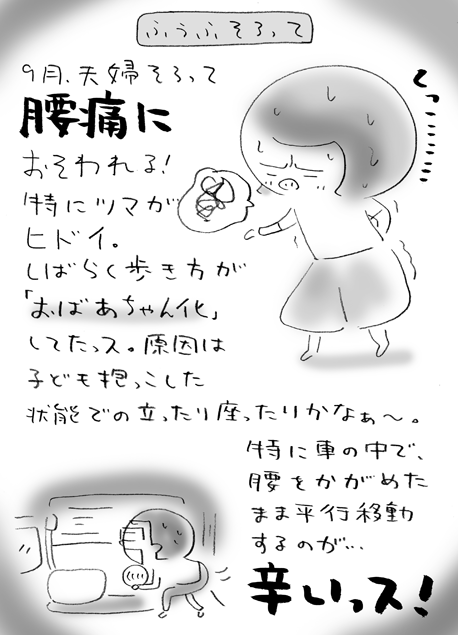 ふうふそろって
9月、夫婦そろって
腰痛に
おそわれる!
特にツマが
ヒドイ。
しばらく歩き方が
「おばあちゃん化」
してたっス。原因は
子ども抱っこした
状態での立ったり座ったりかなぁ〜。
特に車の中で、
腰をかがめた
まま平行移動
するのが…
辛いっス!